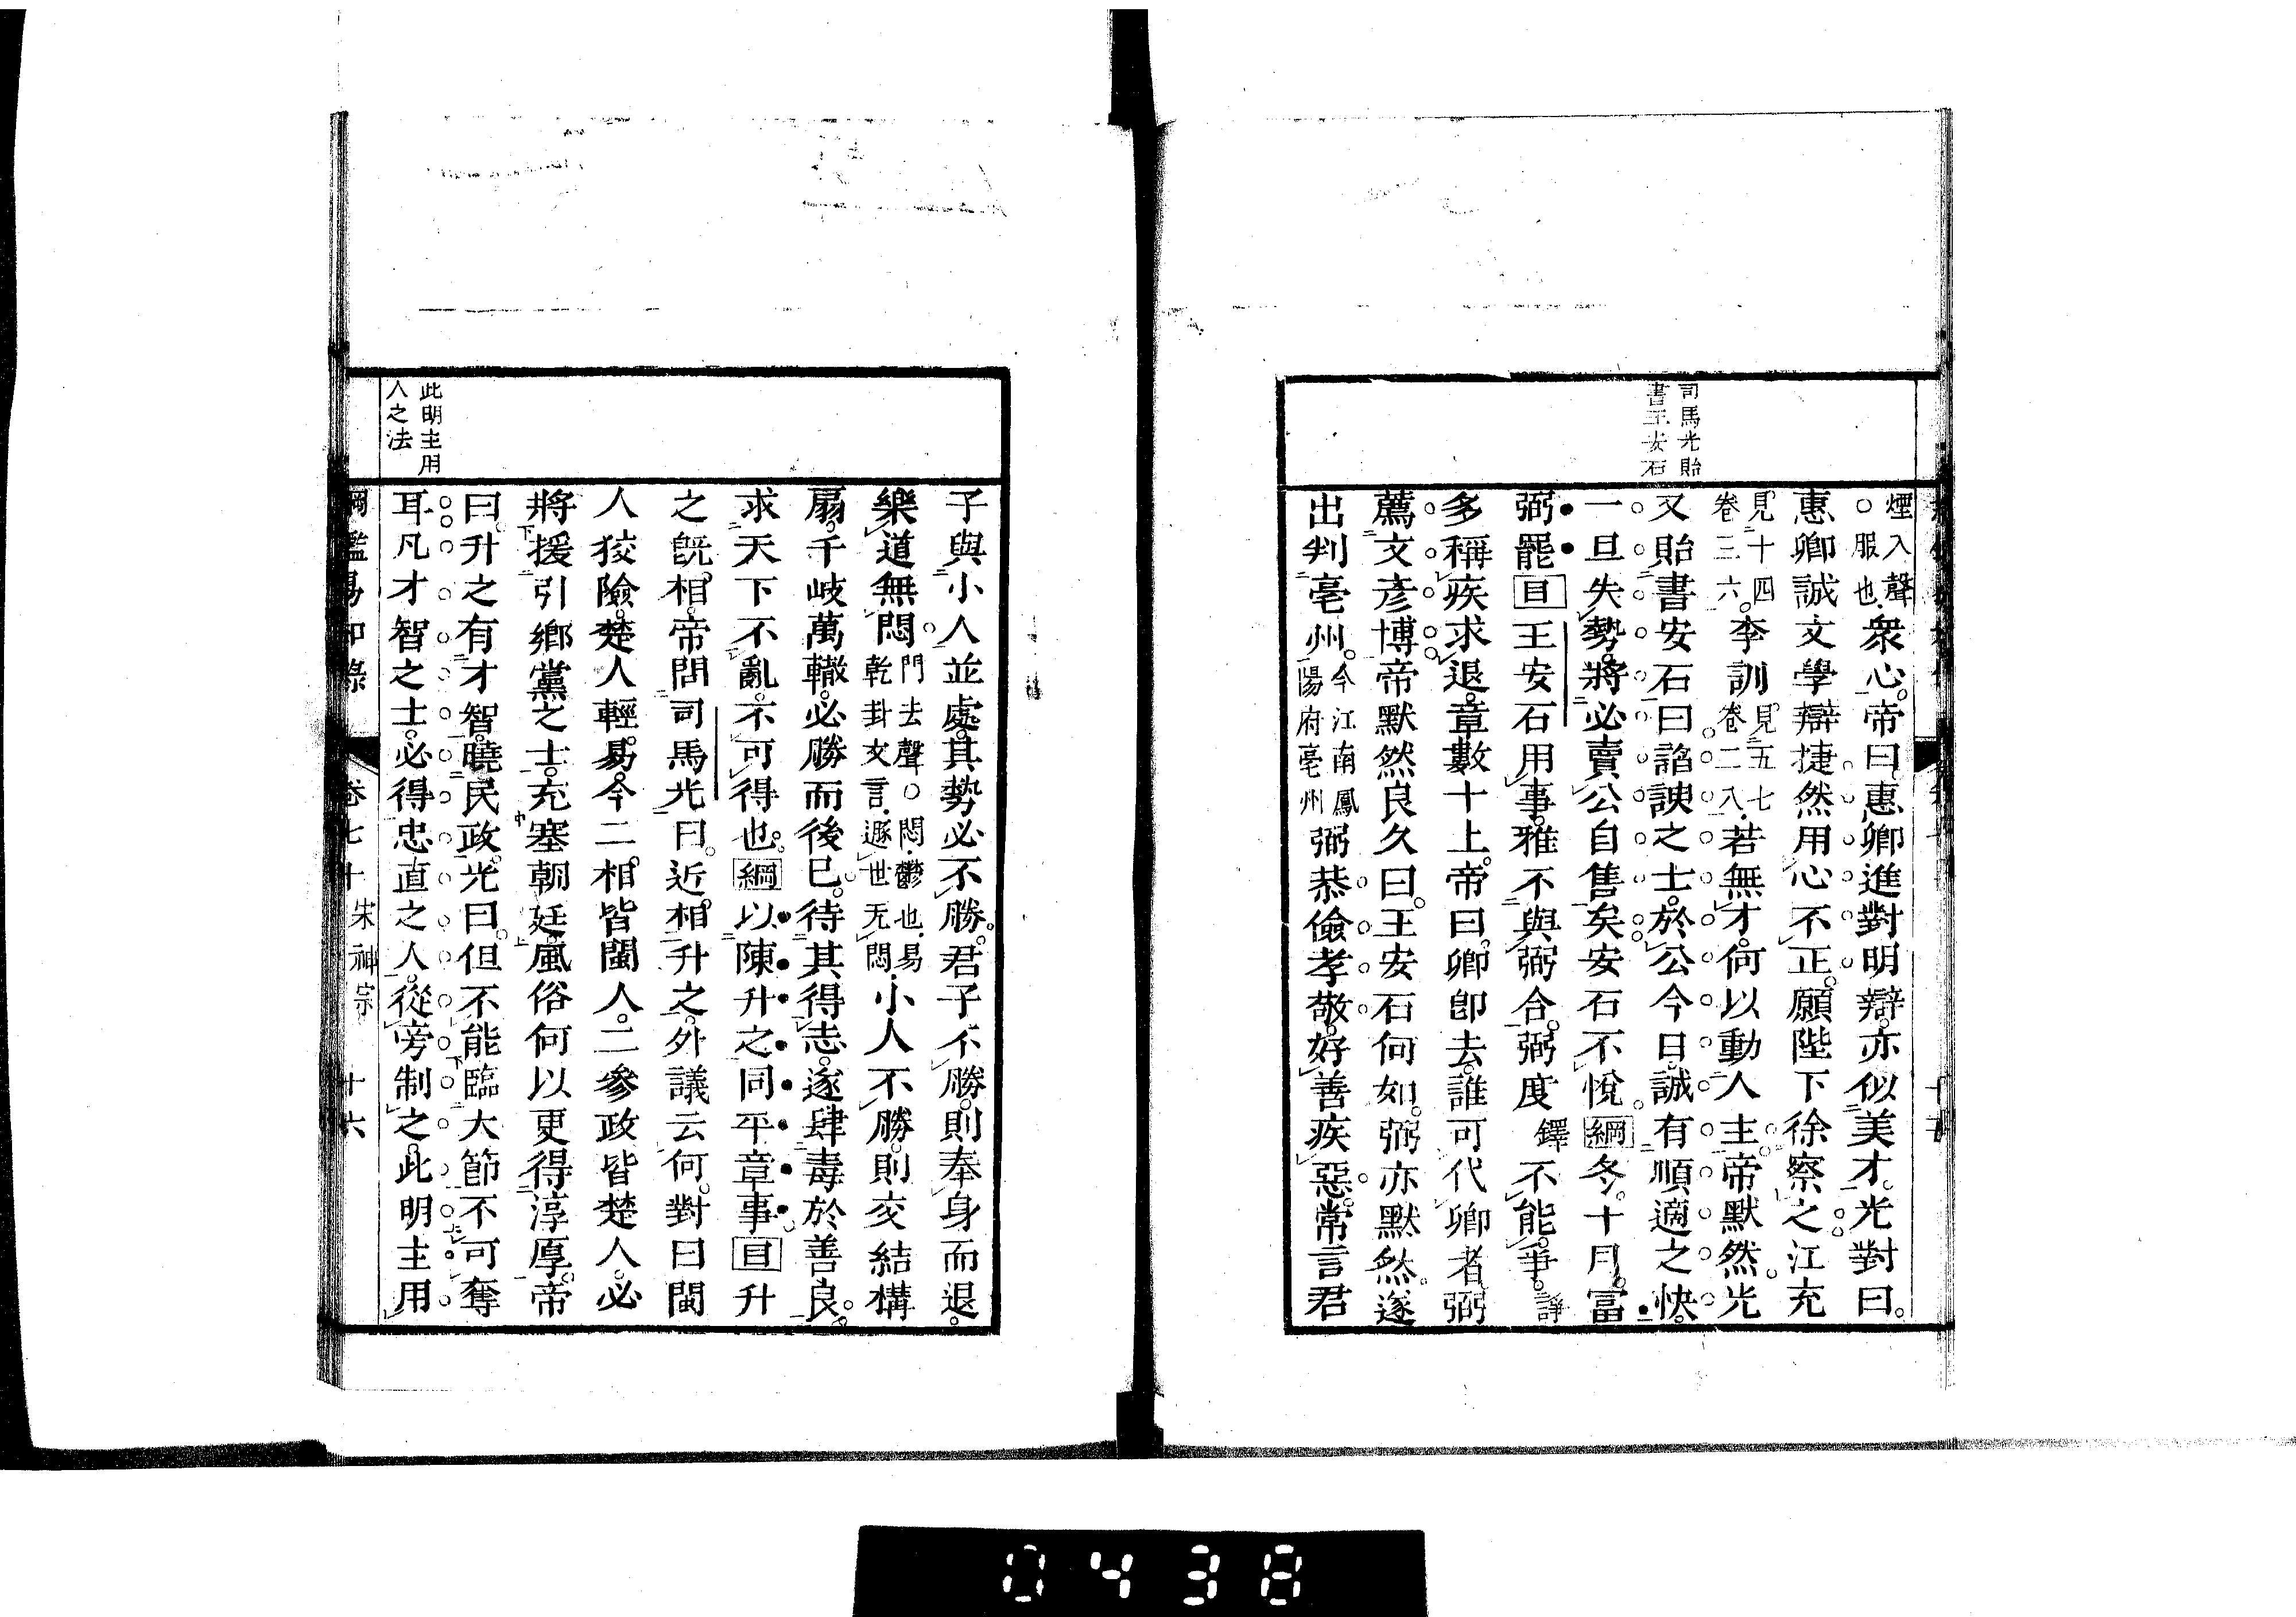 司馬光貽
書王安石
煙入聲
○服也衆心。帝曰惠卿進對明辯。亦似美才。光對曰。
惠卿誠文學辯捷然用心不正。願陛下徐察之江充
見十四
卷三六。李訓見五七
卷二八若無才。何以動人主。帝默然。光
又貽書安石曰諂諛之士。於公今日。誠有順適之快。
一旦失勢。將必賣公自售矣安石不悅。綱冬。十月。富
弼罷目王安石用事。雅不與弼合。弼度鐸不能爭。諍
多稱疾求退。章數十上。帝曰。卿卽去。誰可代卿者弼
薦文彦博帝默然良久曰。王安石何如。弼亦默然。遂
出判亳州。今江南鳳
陽府亳州弼恭儉孝敬。好善疾惡。常言君
子與小人並處。其勢必不勝。君子不勝。則奉身而退。
樂道無悶門去聲○悶鬱也易
乾卦文言遯世无悶小人不勝。則交結構
扇。千岐萬轍。必勝而後已。待其得志。遂肆毒於善良。
求天下不亂。不可得也。綱以陳升之同平章事。目升
之旣相。帝問司馬光曰。近相升之。外議云何。對曰閩
人狡險。楚人輕易。今二相皆閩人。二參政皆楚人。必
將援引鄉黨之士。充塞朝廷。風俗何以更得淳厚。帝
曰。升之有才智。曉民政。光曰。但不能臨大節不可奪
耳凡才智之士。必得忠直之人。從旁制之。此明主用
此明主用
人之法
綱鑑易知錄 卷七十 宋神宗 十六
0438